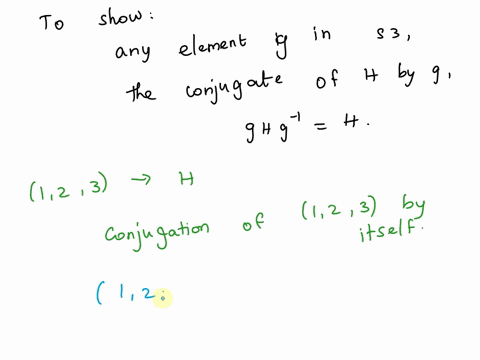 To show:
any element g in S3,
the conjugate of H by g,
gHg⁻¹ = H.
(1,2,3) → H
Conjugation of (1,2,3) by
itself.
(1,2